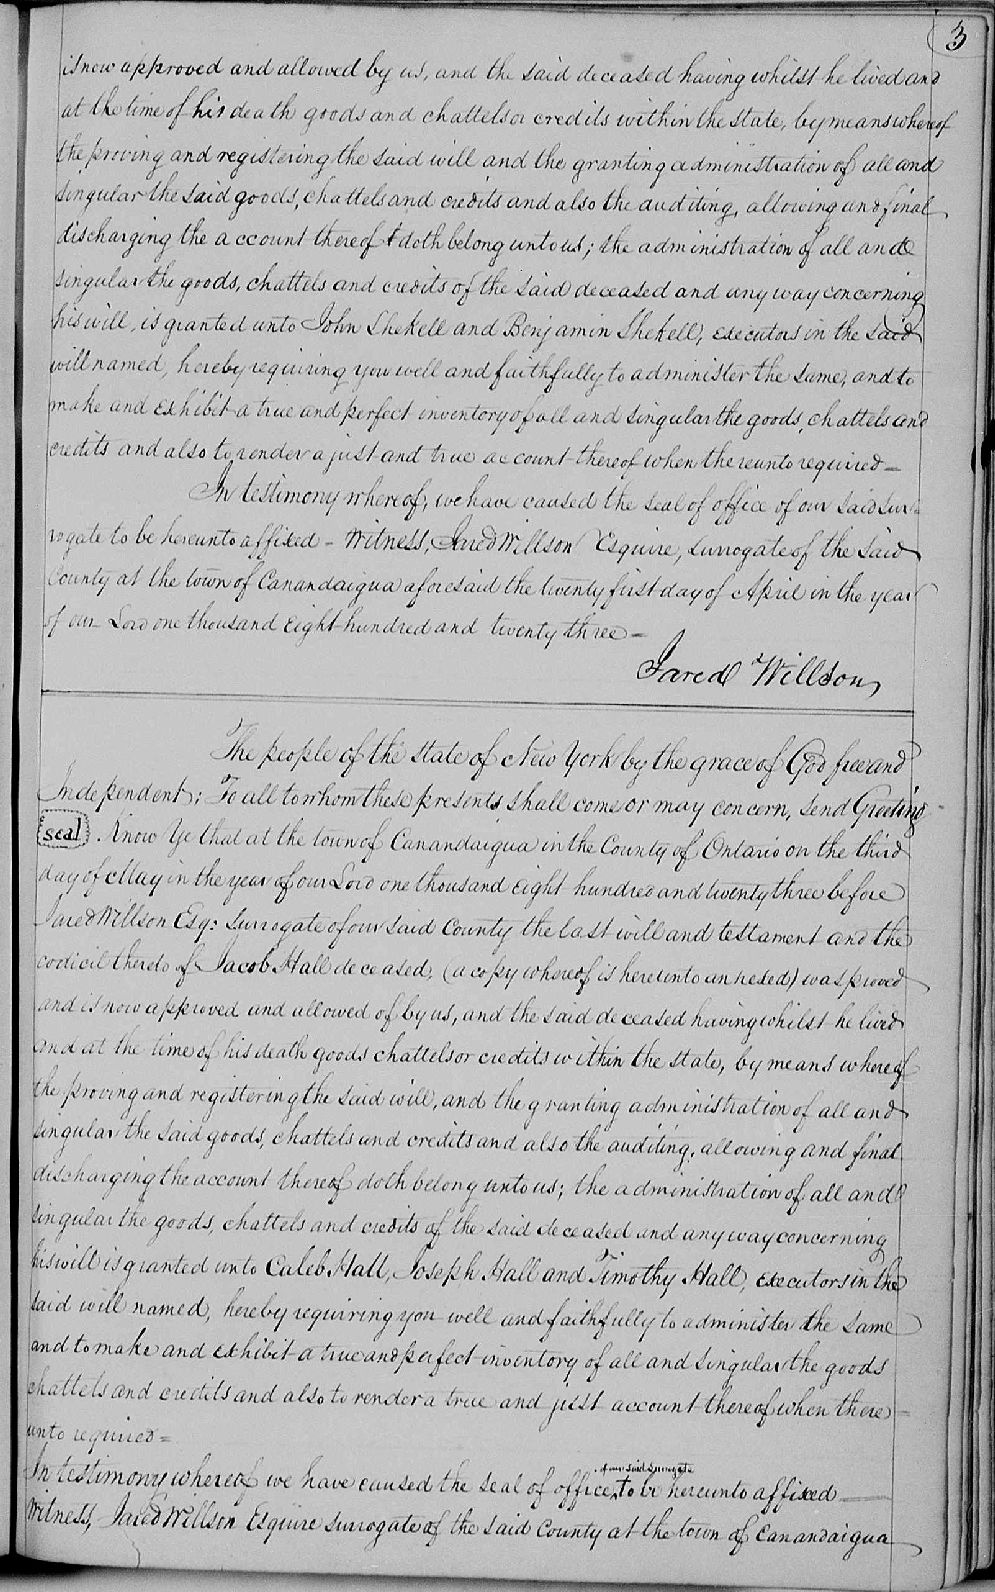 3
is now approved and allowed by us, and the said deceased having whilst he lived and
at the time of his death goods and chattels or credits within the state, by means whereof
the proving and registering the said will and the granting administration of all and
singular the said goods, chattels and credits and also the auditing, allowing and final
discharging the account thereof doth belong unto us; the administration of all and
singular the goods, chattels and credits of the said deceased and any way concerning
his will, is granted unto John Shekell and Benjamin Shekell, executors in the said
will named, hereby requiring you well and faithfully to administer the same, and to
make and exhibit a true and perfect inventory of all and singular the goods, chattels and
credits and also to render a just and true account thereof when thereunto required =
In testimony whereof, we have caused the seal of office of our said Sur=
rogate to be hereunto affixed - Witness, Jared Willson Esquire, Surrogate of the said
County at the town of Canandaigua aforesaid the twenty first day of April in the year
of our Lord one thousand Eight hundred and twenty three =
Jared Willson
The people of the state of New York by the grace of God free and
Independent: To all to whom these presents shall come or may concern, send Greeting
seal . Know Ye that at the town of Canandaigua in the County of Ontario on the third
day of May in the year of our Lord one thousand Eight hundred and twenty three before
Jared Willson Esq: Surrogate of our said County the last will and testament and the
codicil thereto of Jacob Hall deceased, (a copy whereof is hereunto annexed) was proved
and is now approved and allowed of by us, and the said deceased having whilst he lived
and at the time of his death goods chattels or credits within the state, by means whereof
the proving and registering the said will, and the granting administration of all and
singular the said goods, chattels and credits and also the auditing, allowing and final
discharging the account thereof doth belong unto us; the administration of all and
singular the goods, chattels and credits of the said deceased and any way concerning
his will is granted unto Caleb Hall, Joseph Hall and Timothy Hall, executors in the
said will named, hereby requiring you well and faithfully to administer the same
and to make and exhibit a true and perfect inventory of all and singular the goods
chattels and credits and also to render a true and just account thereof when there=
unto required =
of our said Surrogate
In testimony whereof we have caused the seal of office, to be hereunto affixed
Witness, Jared Willson Esquire Surrogate of the said County at the town of Canandaigua